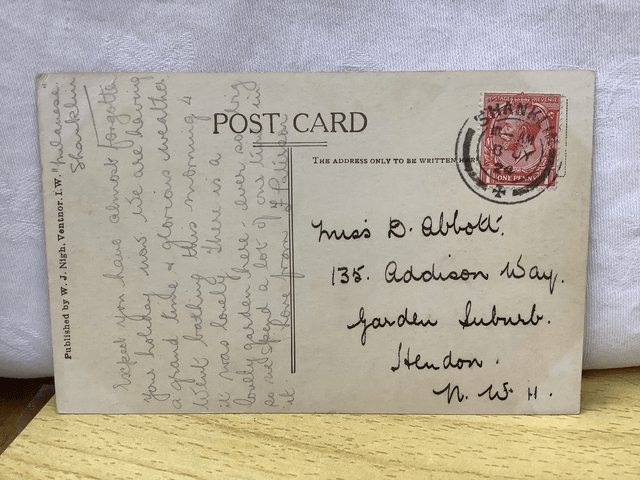 POST CARD
THE ADDRESS ONLY TO BE WRITTEN HERE
Published by W. J. Nigh, Ventnor. I.W.
Shanklin
Expect you have almost forgotten
your holiday now. We are having
a grand time & glorious weather
Went bathing this morning &
it was lovely. There is a
lovely garden here - ever so big
so we spend a lot of our time in
it. Love from
Miss D. Abbott.
135. Addison Way.
Garden Suburb.
Hendon.
N. W. 4.
SHANKLIN
AM
POSTAGE REVENUE
ONE PENNY